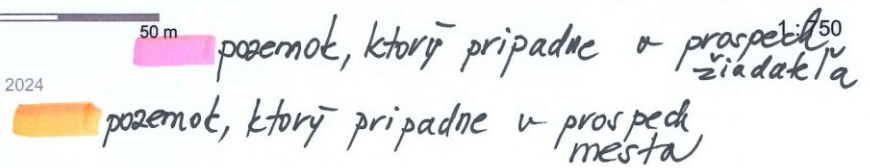 50 m
1: 750
pozemok, ktorý pripadne v prospech
žiadateľa
2024
pozemok, ktorý pripadne v prospech
mesta